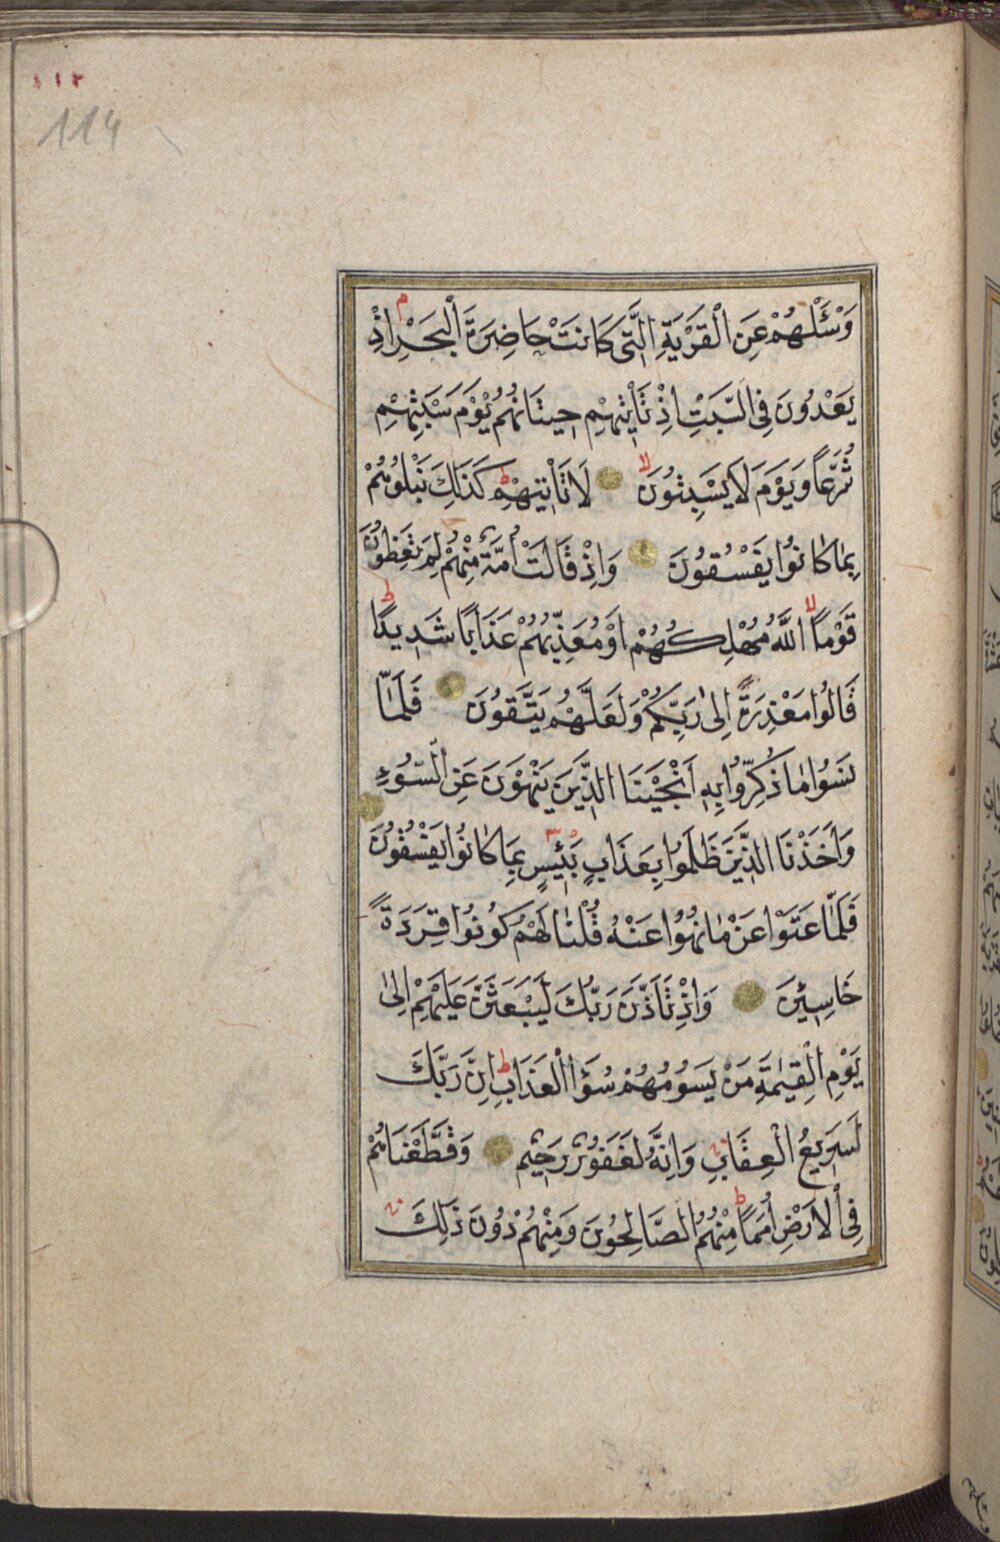 ١١٢
114
وَسْئَلْهُمْ عَنِ الْقَرْيَةِ الَّتِى كَانَتْ حَاضِرَةَ الْبَحْرِ اِذْ
يَعْدُونَ فِى السَّبْتِ اِذْ تَاْتِيهِمْ حِيتَانُهُمْ يَوْمَ سَبْتِهِمْ
شُرَّعًا وَيَوْمَ لَا يَسْبِتُونَ لَا تَاْتِيهِمْ كَذٰلِكَ نَبْلُوهُمْ
بِمَا كَانُوا يَفْسُقُونَ وَاِذْ قَالَتْ اُمَّةٌ مِنْهُمْ لِمَ تَعِظُونَ
قَوْمًا اللّٰهُ مُهْلِكُهُمْ اَوْ مُعَذِّبُهُمْ عَذَابًا شَدِيدًا
قَالُوا مَعْذِرَةً اِلٰى رَبِّكُمْ وَلَعَلَّهُمْ يَتَّقُونَ فَلَمَّا
نَسُوا مَا ذُكِّرُوا بِهِ اَنْجَيْنَا الَّذِينَ يَنْهَوْنَ عَنِ السُّوءِ
وَاَخَذْنَا الَّذِينَ ظَلَمُوا بِعَذَابٍ بَئِيسٍ بِمَا كَانُوا يَفْسُقُونَ
فَلَمَّا عَتَوْا عَنْ مَا نُهُوا عَنْهُ قُلْنَا لَهُمْ كُونُوا قِرَدَةً
خَاسِئِينَ وَاِذْ تَاَذَّنَ رَبُّكَ لَيَبْعَثَنَّ عَلَيْهِمْ اِلٰى
يَوْمِ الْقِيٰمَةِ مَنْ يَسُومُهُمْ سُوءَ الْعَذَابِ اِنَّ رَبَّكَ
لَسَرِيعُ الْعِقَابِ وَاِنَّهُ لَغَفُورٌ رَحِيمٌ وَقَطَّعْنَاهُمْ
فِى الْاَرْضِ اُمَمًا مِنْهُمُ الصَّالِحُونَ وَمِنْهُمْ دُونَ ذٰلِكَ